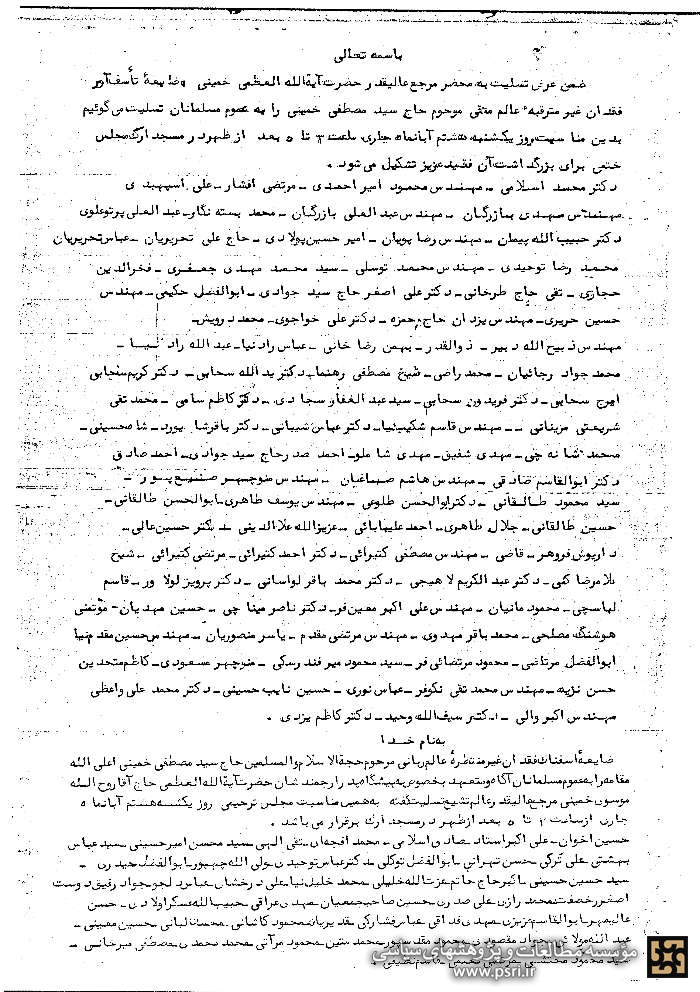 باسمه تعالی
ضمن عرض تسلیت به محضر مرجع عالیقدر حضرت آیة الله العظمی خمینی وضایعهٔ تأسف آور
فقدان غیر مترقبه عالم متقی مرحوم حاج سید مصطفی خمینی را به عموم مسلمانان تسلیت می گوئیم
بدین مناسبت روز یکشنبه هشتم آبانماه جاری ساعت ۳ تا ۵ بعد از ظهر در مسجد ارک مجلس
ختمی برای بزرگداشت آن فقید عزیز تشکیل می شود .
دکتر محمد اسلامی ـ مهندس محمود امیر احمدی ـ مرتضی افشار ـ علی اسپهبدی
مهندس مهدی بازرگان ـ مهندس عبدالعلی بازرگان ـ محمد بسته نگار ـ عبدالعلی پرتو علوی
دکتر حبیب الله پیمان ـ مهندس رضا پویان ـ امیر حسین پولادی ـ حاج علی تحریریان ـ عباس تحریریان
محمد رضا توحیدی ـ مهندس محمد توسلی ـ سید محمد مهدی جعفری ـ فخرالدین
حجازی ـ تقی حاج طرخانی ـ دکتر علی اصغر حاج سید جوادی ـ ابوالفضل حکیمی ـ مهندس
حسین حریری ـ مهندس یزدان حاج حمزه ـ دکتر علی خواجوی ـ محمد درویش ـ
مهندس ذبیح الله دبیر ـ ذوالقدر ـ بهمن رضا خانی ـ عباس رادنیا ـ عبدالله رادنیا ـ
محمد جواد رجائیان ـ محمد راضی ـ شیخ مصطفی رهنما ـ دکتر ید الله سحابی ـ دکتر کریم سنجابی
ایرج سحابی ـ دکتر فریدون سحابی ـ سید عبدالغفار سجادی ـ دکتر کاظم سامی ـ محمد تقی
شریعتی مزینانی ـ مهندس قاسم شکیب نیا ـ دکتر عباس شیبانی ـ دکتر باقر ـ شاه حسینی ـ
محمد شانه چی ـ مهدی شفیق ـ مهدی شاملو ـ احمد صدر حاج سید جوادی ـ احمد صادق
دکتر ابوالقاسم صادقی ـ مهندس هاشم صباغیان ـ مهندس منوچهر
سید محمود طالقانی ـ دکتر ابوالحسن طلوعی ـ مهندس یوسف طاهری ـ ابوالحسن طالقانی ـ
حسین طالقانی ـ جلال طاهری ـ احمد علیبابائی ـ عزیزالله علاالدینی ـ دکتر حسین عالی ـ
داریوش فروهر ـ قاضی ـ مهندس مصطفی کتیرائی ـ دکتر احمد کتیرائی ـ مرتضی کتیرائی ـ شیخ
غلامرضا ـ دکتر عبدالکریم لاهیجی ـ دکتر محمد باقر لواسانی ـ دکتر پرویز ـ قاسم
لباسچی ـ محمود مانیان ـ مهندس علی اکبر معین فر ـ دکتر ناصر مینا چی ـ حسین مهدیان ـ
هوشنگ مصلحی ـ محمد باقر مهدوی ـ مهندس مرتضی مقدم ـ یاسر منصوریان ـ مهندس حسین مقدم نیا
ابوالفضل مرتاضی ـ محمود مرتضائی فر ـ سید محمود میر فندرسکی ـ منوچهر مسعودی ـ کاظم متحدین
حسن نزیه ـ مهندس محمد تقی نکوفر ـ عباس نوری ـ حسین نایب حسینی ـ دکتر محمد علی واعظی
مهندس اکبر والی ـ دکتر سیف الله وحید ـ دکتر کاظم یزدی .
به نام خدا
ضایعهٔ اسفناک فقدان غیر منتظرهٔ عالم ربانی مرحوم حجة الاسلام والمسلمین حاج سید مصطفی خمینی اعلی الله
مقامه را به عموم مسلمانان آگاه و متعهد بخصوص به پیشگاه پدر ارجمندشان حضرت آیة الله العظمی حاج آقا روح الله
موسوی خمینی مرجع عالیقدر عالم تشیع تسلیت گفته به همین مناسبت مجلس ترحیمی روز یکشنبه هشتم آبانماه
جاری از ساعت ۳ تا ۵ بعد از ظهر در مسجد ارک برقرار می باشد .
حسین اخوان ـ علی اکبر استاد ـ صادق اسلامی ـ محمد افجه ای ـ تقی الهی ـ سید محسن امیرحسینی ـ سید عباس
بهشتی ـ علی ترکی ـ حسن تهرانی ـ ابوالفضل توکلی ـ دکتر عباس توحیدی ـ ولی الله چهپور ـ ابوالفضل حیدری ـ
سید حسین حسینی ـ اکبر حاج حاتم ـ عزت الله خلیلی ـ محمد خلیل نیا ـ علی درخشان ـ عباس ـ جواد رفیق دوست
اصغر رخصفت ـ محمد رازی ـ علی صدری ـ حسین صاحب جمعیان ـ مهدی عراقی ـ حبیب الله عسکراولادی ـ حسن
ابوالقاسم عزیزی ـ مهدی ـ عباس فشارکی ـ ـ محمود کاشانی ـ محمد لبانی ـ حسین معینی ـ
عبدالله مولائی ـ جواد مقصودی ـ محمود مقدس پور ـ محمد متین ـ محمود مرآتی ـ محمد محمدی ـ مصطفی میرخانی ـ
سید محمود
مؤسسه مطالعات و پژوهشهای سیاسی
www.psri.ir